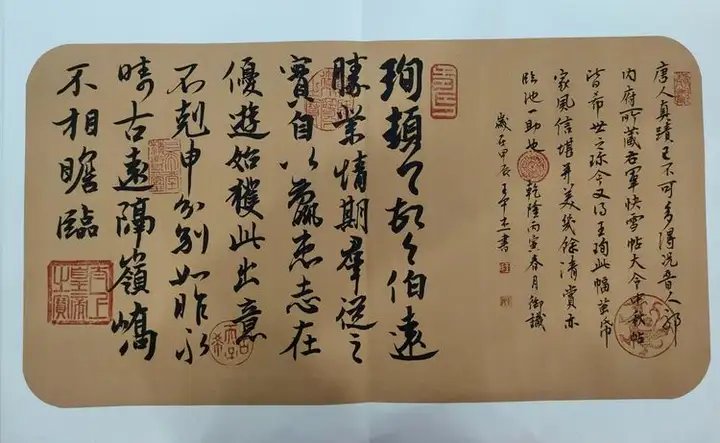 唐人真蹟已不可多得况晋人耶
内府所藏右軍快雪帖大令中秋帖
皆希世之珍今又得王珣此幅茧帋
家風信堪并美幾餘清賞亦
臨池一助也 乾隆丙寅春月御識
歲在甲辰 王書
珣頓首頓首伯遠
勝業情期羣從之
寶自以羸患志在
優遊始獲此出意
不剋申分別如昨永
疇古遠隔嶺嶠
不相瞻臨
太上皇帝之寶